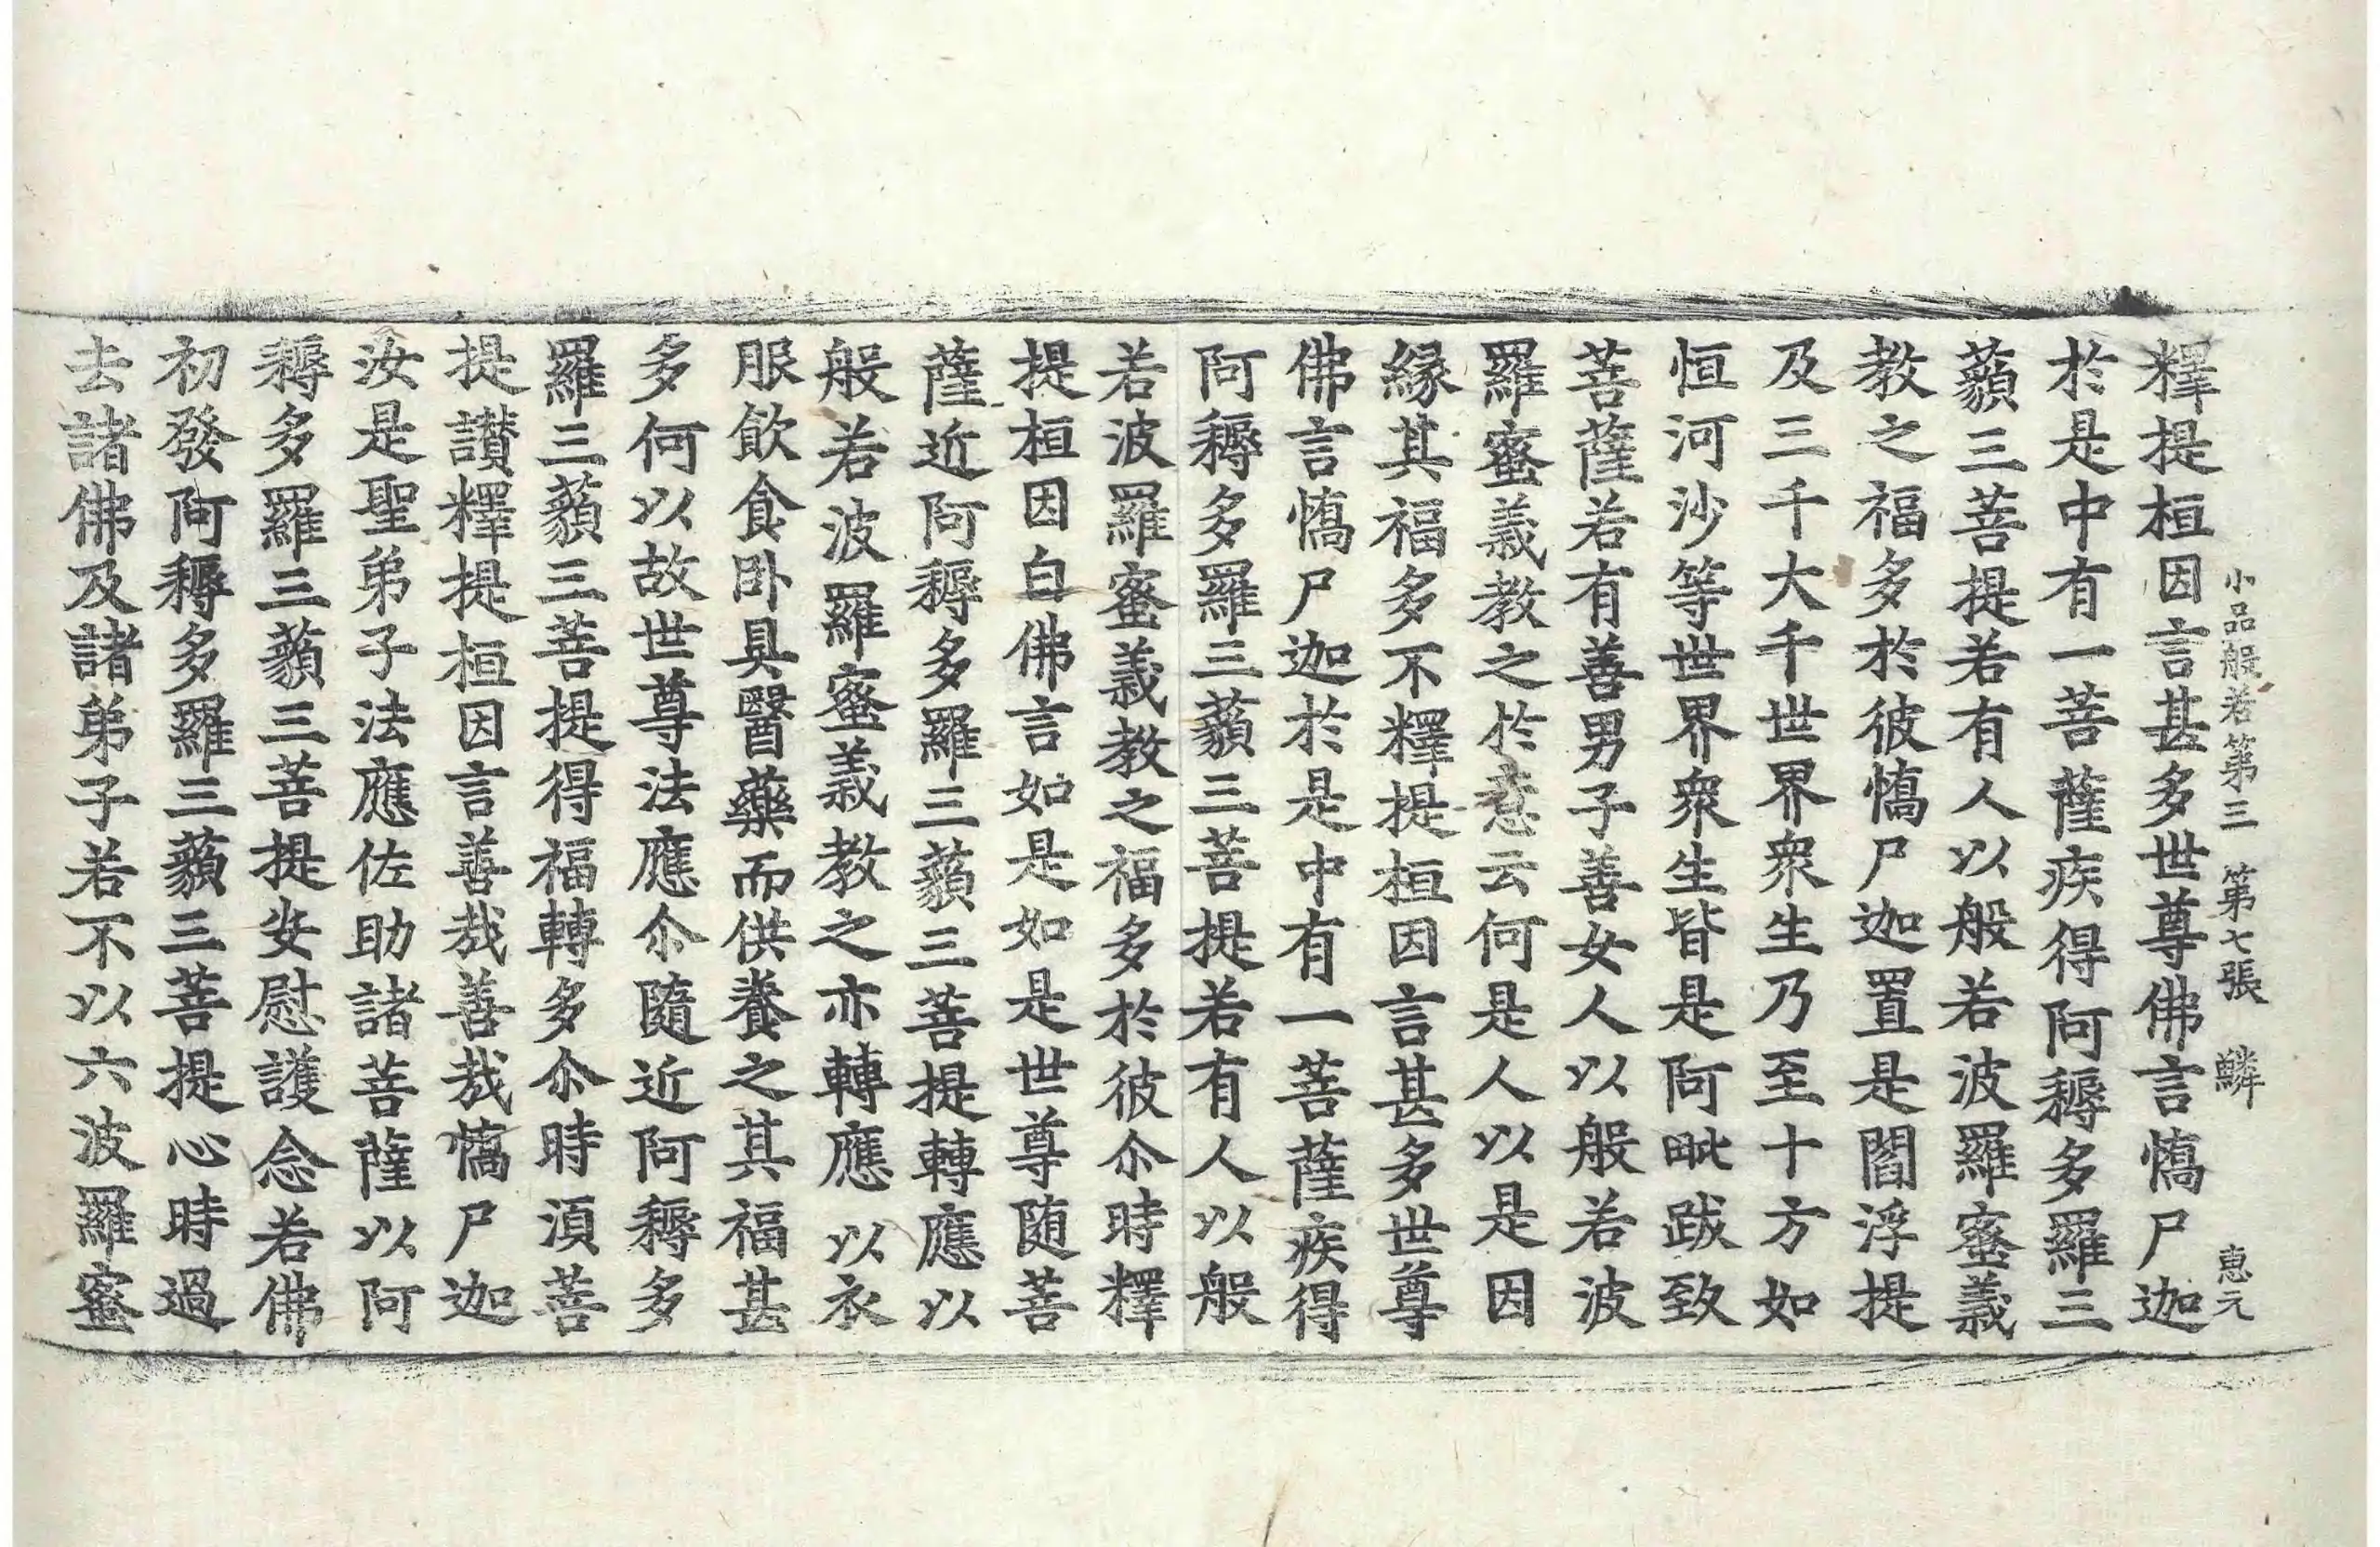 小品般若第三 第七張 鱗 惠元
釋提桓因言甚多世尊佛言憍尸迦
於是中有一菩薩疾得阿耨多羅三
藐三菩提若有人以般若波羅蜜義
教之福多於彼憍尸迦置是閻浮提
及三千大千世界衆生乃至十方如
恒河沙等世界衆生皆是阿毗跋致
菩薩若有善男子善女人以般若波
羅蜜義教之於意云何是人以是因
緣其福多不釋提桓因言甚多世尊
佛言憍尸迦於是中有一菩薩疾得
阿耨多羅三藐三菩提若有人以般
若波羅蜜義教之福多於彼尒時釋
提桓因白佛言如是如是世尊随菩
薩近阿耨多羅三藐三菩提轉應以
般若波羅蜜義教之亦轉應以衣
服飲食卧具醫藥而供養之其福甚
多何以故世尊法應尒隨近阿耨多
羅三藐三菩提得福轉多尒時湏菩
提讃釋提桓因言善哉善哉憍尸迦
汝是聖弟子法應佐助諸菩薩以阿
耨多羅三藐三菩提安慰護念若佛
初發阿耨多羅三藐三菩提心時過
去諸佛及諸弟子若不以六波羅蜜